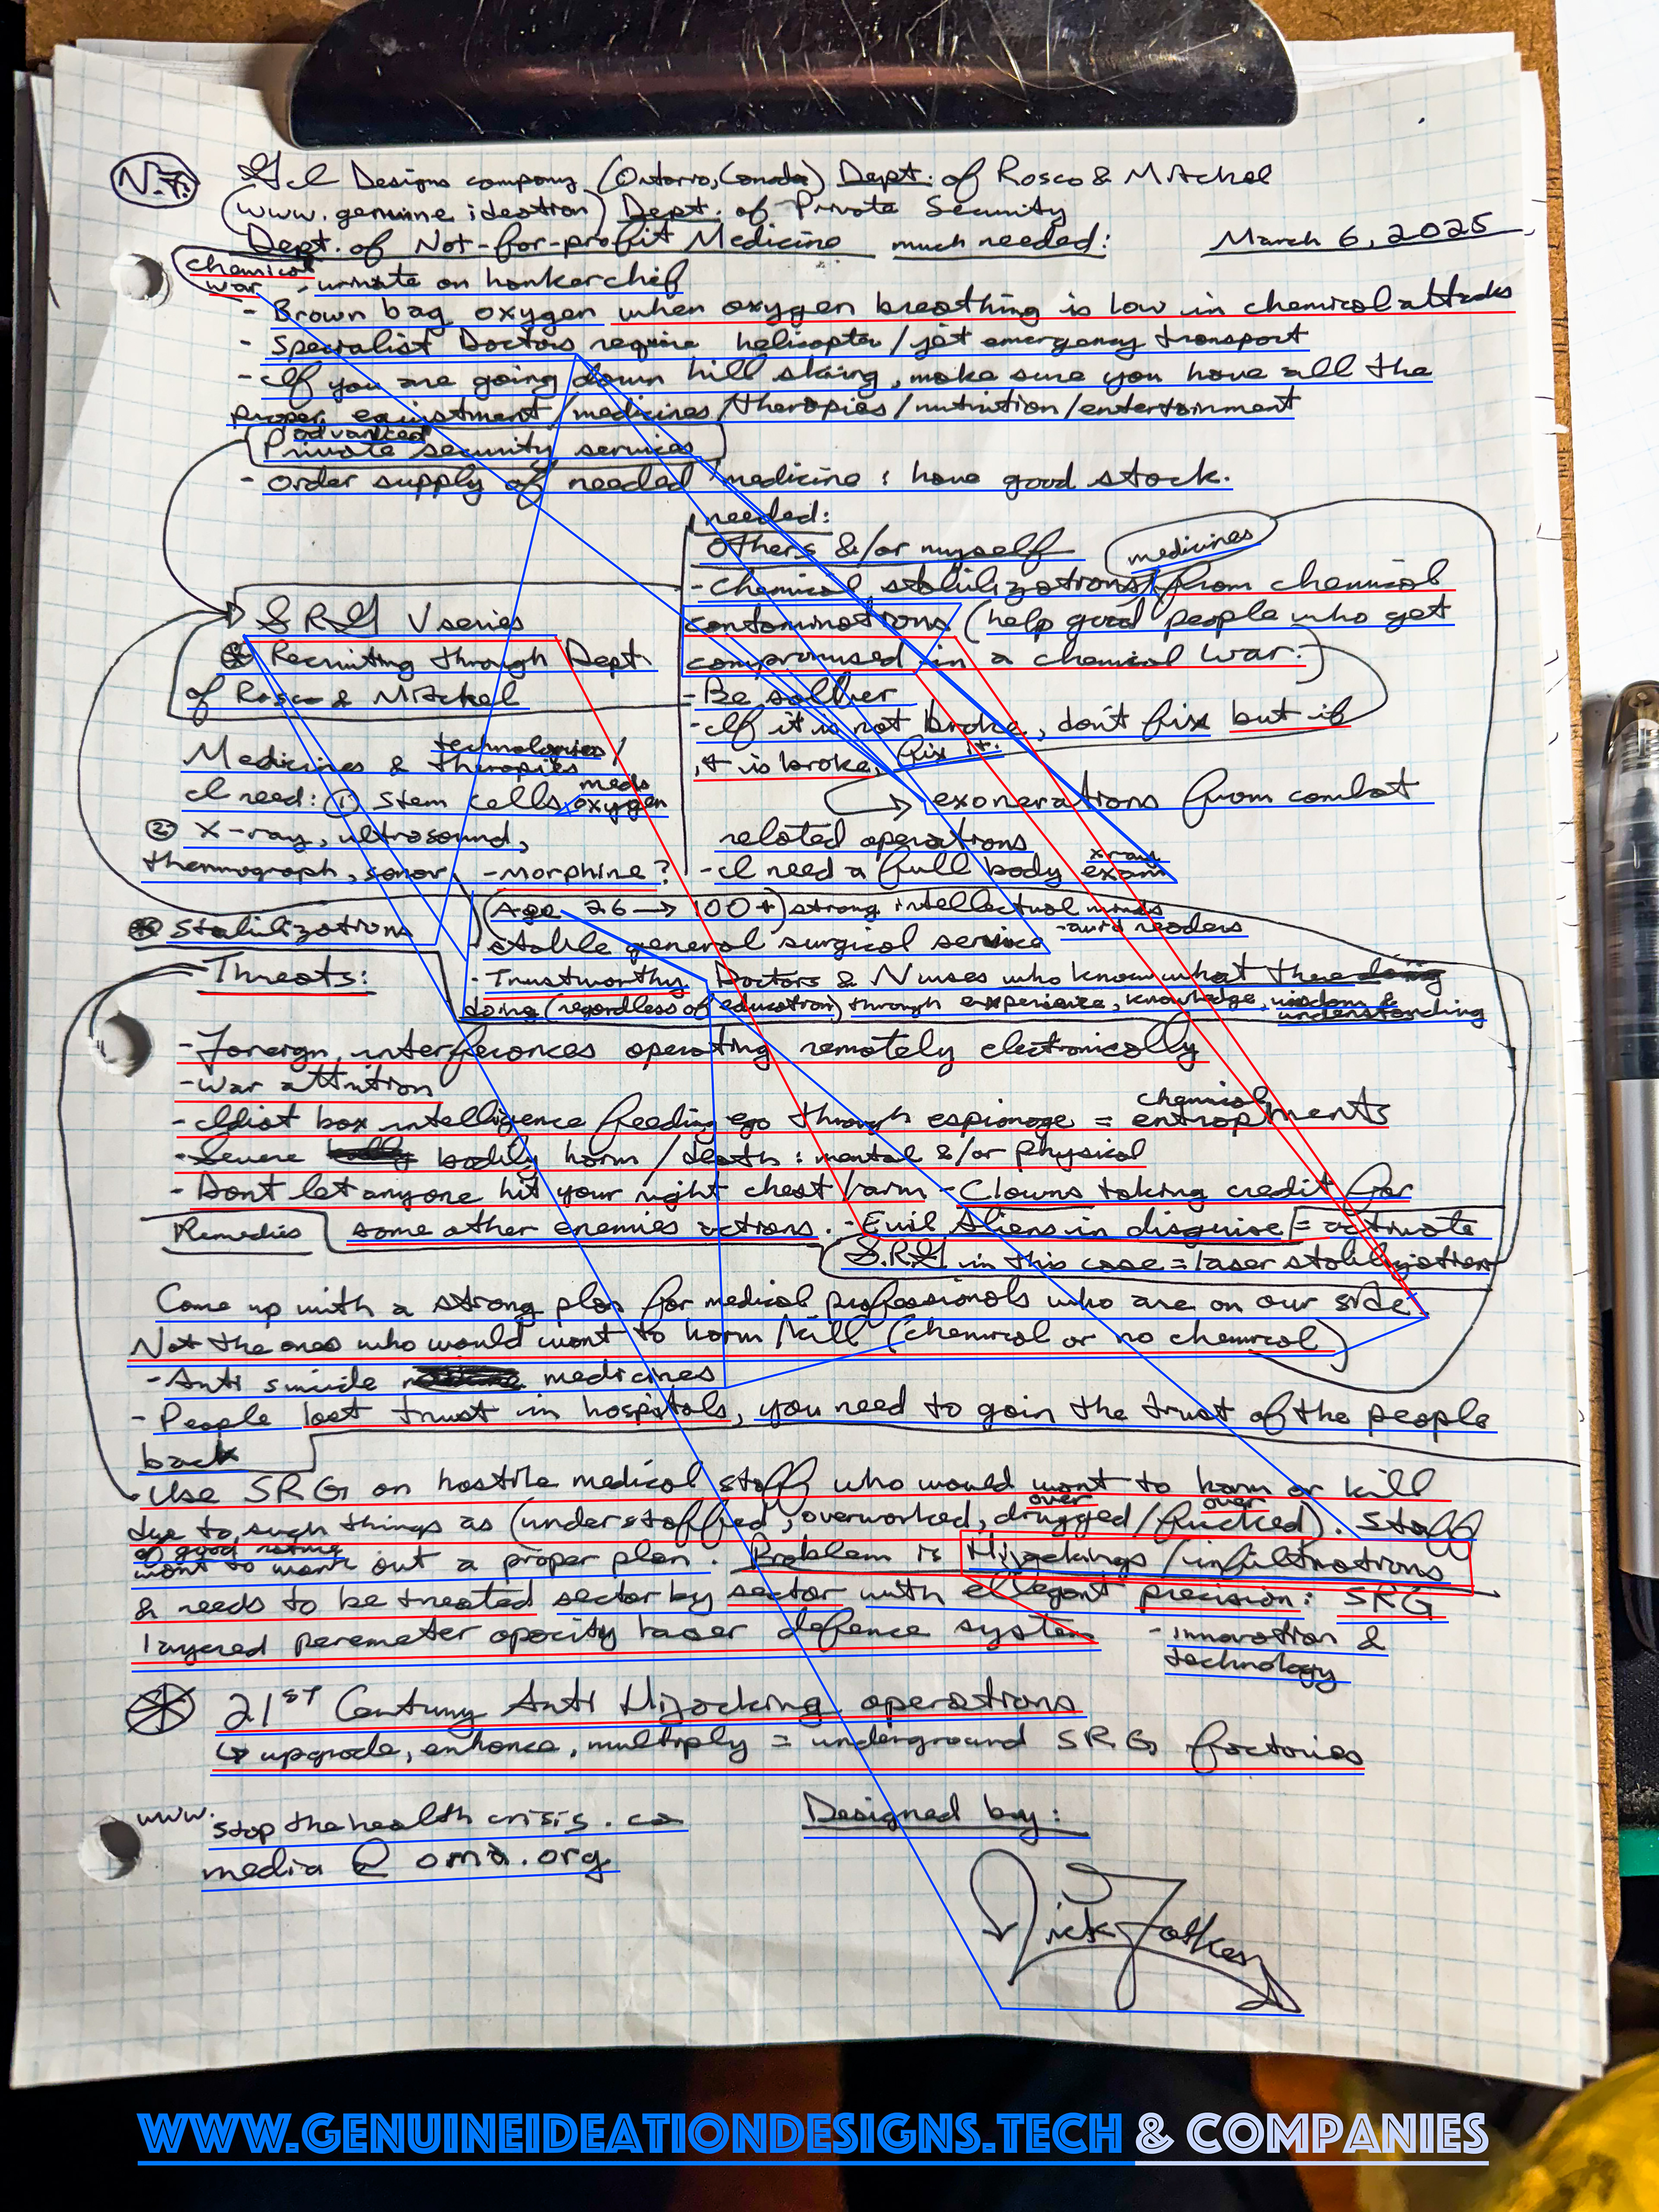 N.F. G.I. Designs company (Ontario, Canada) Dept. of Rosco & Mitchel
(www.genuine ideation) Dept. of Private Security
Dept. of Not-for-profit Medicine much needed: March 6, 2025
chemical war - urinate on hankerchif
- Brown bag oxygen when oxygen breathing is low in chemical attacks
- Specialist Doctors require helicopter/jet emergency transport
- If you are going down hill skiing, make sure you have all the
proper equiptment/medicines/therapies/nutrition/entertainment
advanced
Private security services
- order supply of needed medicine : have good stock.
needed:
others &/or myself
medicines
- Chemical stabilizations from chemical
contaminations (help good people who get
compromised in a chemical war.)
- Be soilver
- If it is not broke, don't fix but if
it is broke, fix it.
exonerations from combat
related operations
- I need a full body xray exam
SRG V series
Recruiting through Dept
of Rosco & Mitchel
technologies/
Medicines & therapies
I need: ① Stem cells, meds oxygen
② X-ray, ultrasound,
thermograph, sonar, - Morphine?
Stabilizations
(Age 26 → 100+) strong intellectual minds
- aura readers
- stable general surgical service
- Trustworthy Doctors & Nurses who know what
doing (regardless of education) through experience, knowledge, wisdom &
understanding
Threats:
- Foreign interferences operating remotely electronically
- war attrition
- Idiot box intelligence feeding ego through espionage = chemical entrapments
- Severe bodily harm/death : mental &/or physical
- Dont let anyone hit your right chest/arm - Clowns taking credit for
some other enemies actions. - Evil Aliens in disguise = activate
S.R.G in this case = laser stabilization
Remedies
Come up with a strong plan for medical professionals who are on our side
Not the ones who would want to harm/kill (chemical or no chemical)
- Anti suicide medicines
- People lost trust in hospitals, you need to gain the trust of the people
back
- Use SRG on hostile medical staff who would want to harm or kill
due to such things as (understaffed, overworked, over drugged/over fucked). Staff
of good nature
want to work out a proper plan. Problem is Hijackings/infiltrations
& needs to be treated sector by sector with elegant precision: SRG
layered peremeter opacity laser defence system - innovation &
technology
21st Century Anti Hijacking operations
↳ upgrade, enhance, multiply = underground SRG factories
www.stopthehealthcrisis.ca
media @ oma.org
Designed by:
WWW.GENUINEIDEATIONDESIGNS.TECH & COMPANIES